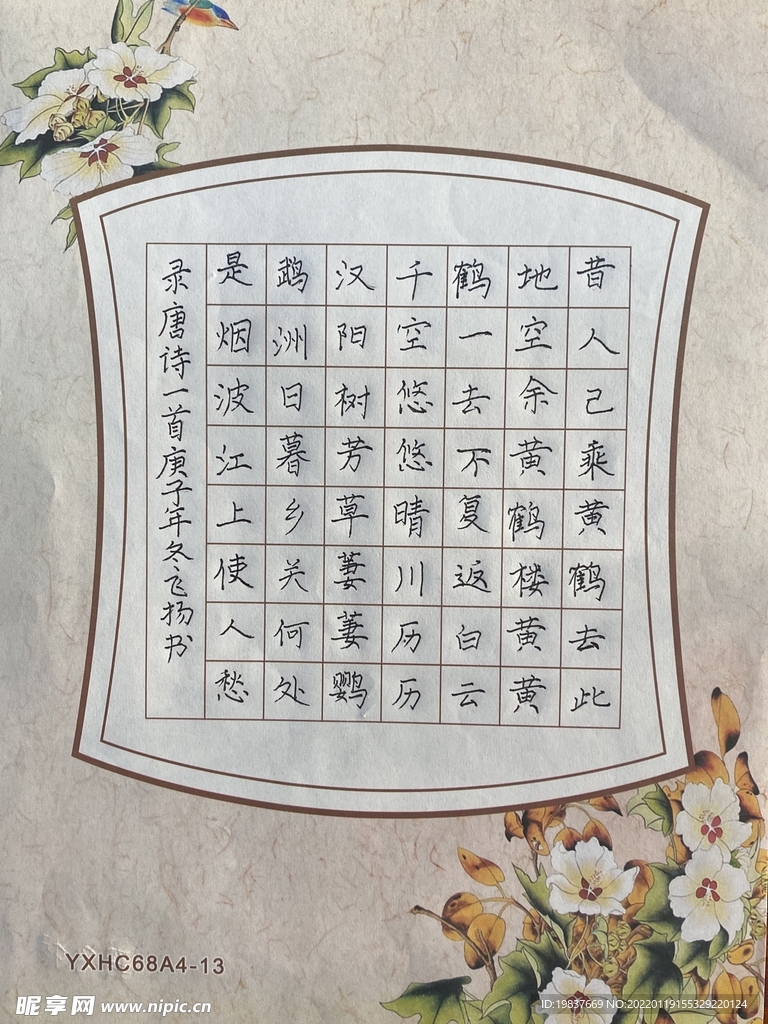 昔人己乘黄鹤去此
地空余黄鹤楼黄黄
鹤一去不复返白云
千空悠悠晴川历历
汉阳树芳草萋萋鹦
鹉洲日暮乡关何处
是烟波江上使人愁
录唐诗一首庚子年冬飞扬书
YXHC68A4-13
昵享网 www.nipic.cn
ID:19837669 NO:20220119155329220124